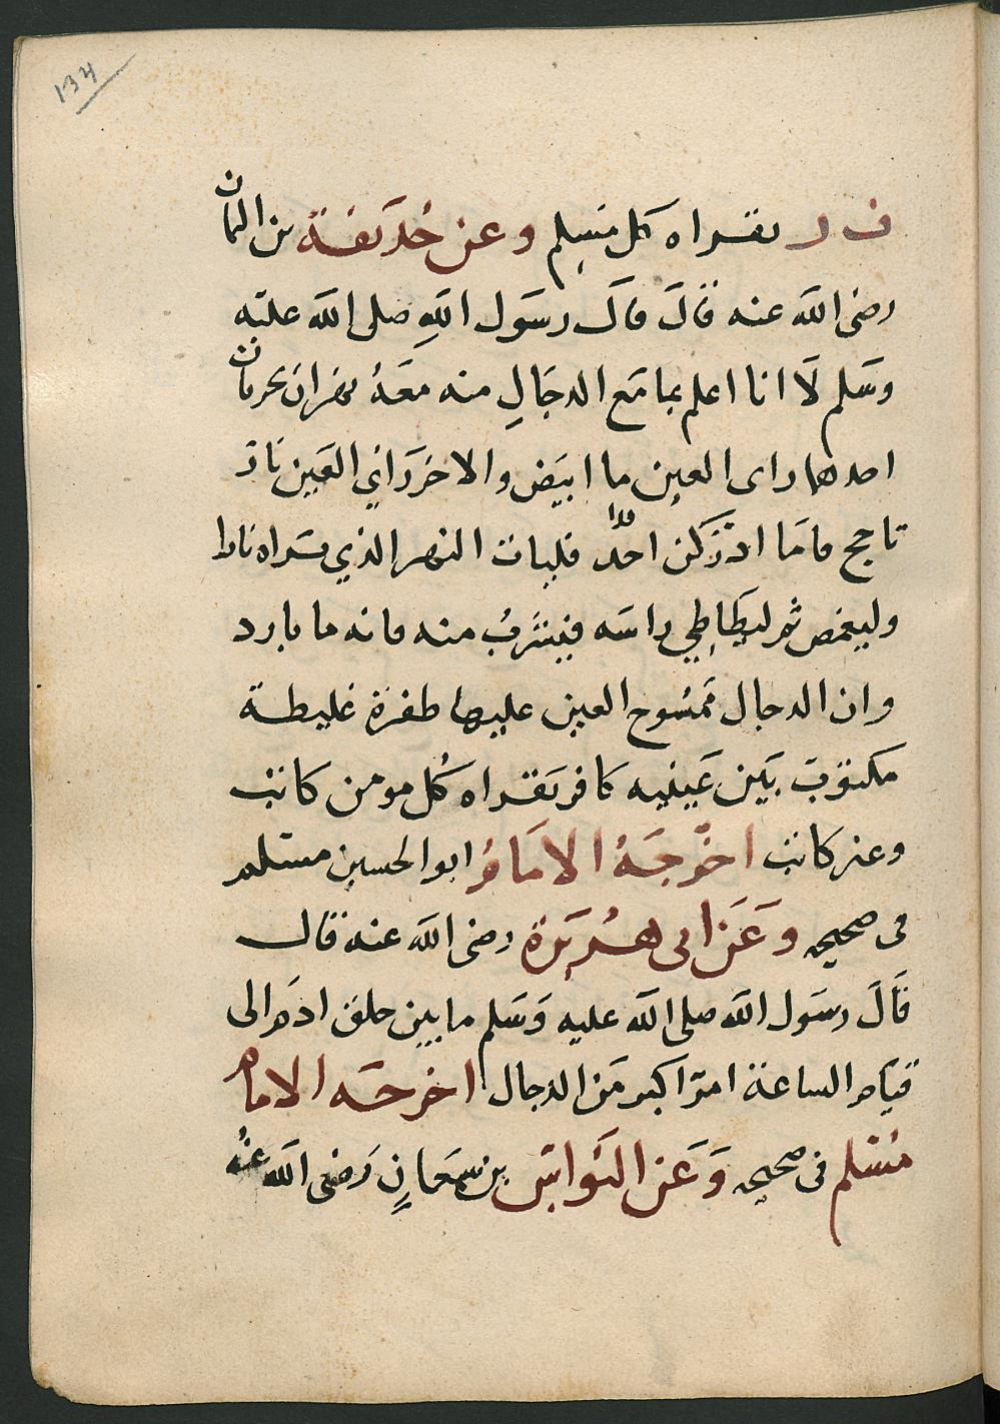 134
ف ر يقراه كل مسلم وعن حُذيفة بن اليمان
رضى الله عنه قالَ قالَ رسَول اللهِ صلى الله عليه
وسَلم لَا انا اعلم بما مَع الدجَالِ منه معَهُ نهران يجريان
احدهما راى العين ما ابيَض والاخر رَاي العَين نار
تاجج فامَا ادرَكن احدًا فليات النهر الذي يَراه نارا
وليغمص ثمر ليَطَاطِي راسَه فيشربُ منه فانه ما بارد
وان الدجال مَمسُوح العين عليها ظفرة غليظة
مكتوبَ بَين عَينيه كافر يَقراه كُل مومن كاتب
وغير كاتب اخرجَهُ الامَامُ ابو الحسين مسلم
فى صحيحه وعَن ابى هُرَيرَة رضى الله عنه قال
قَالَ رسَول الله صلى الله عليه وَسَلم ما بين خلق ادَم الى
قيَام الساعة امر اكبر مَن الدجال اخرجَه الامام
مُسْلم فى صحيحه وَعَن النَواس بن سمعَانٍ رَضى الله عنهُ